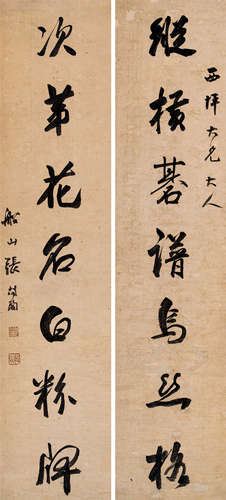 西坪大兄大人
縱橫棊譜烏絲格
次第花名白粉牌
船山張問陶